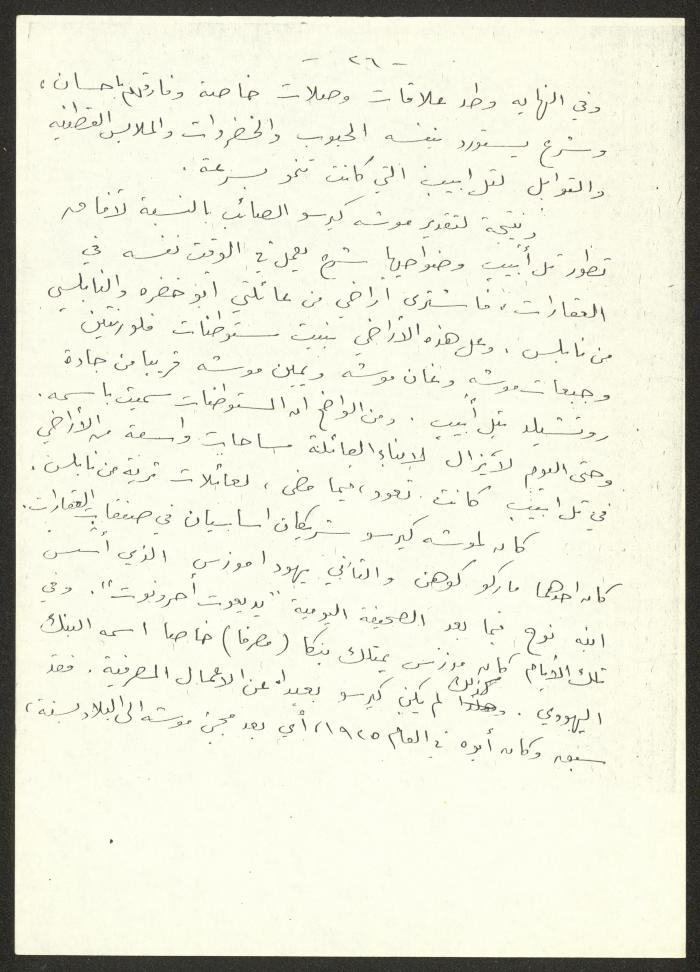 - ٢٦ -
وفي النهايه وطد علاقات وصلات خاصة وفارقهم باحسان،
وشرع يستورد بنفسه الحبوب والخضروات والملابس القطنيه
والتوابل لتل ابيب التي كانت تنمو بسرعة.
ونتيجة لتقدير موشه كيرسو الصائب بالنسبة لآفاق
تطور تل أبيب وضواحيها شرع يعمل في الوقت نفسه في
العقارات، فاشترى اراضي من عائلتي ابو خضره والنابلسي
من نابلس. وعلى هذه الأراضي بنيت مستوطنات فلورنتين
وجبعات موشه وغان موشه ويمين موشه قريبا من جادة
روتشيلد بتل أبيب. ومن الواضح ان المستوطنات سميت باسمه.
وحتى اليوم لا يزال لابناء العائلة مساحات واسعة من الأراضي
في تل ابيب كانت تعود، فيما مضى، لعائلات ثرية من نابلس.
كان لموشه كيرسو شريكان اساسيان في صفقات العقارات.
كان احدهما ماركو كوهن والثاني يهودا موزس الذي أسس
ابنه نوح فيما بعد الصحيفة اليومية "يديعوت أحرونوت". وفي
تلك الأيام كان موزس يمتلك بنكا (مصرفا) خاصا اسمه البنك
اليهودي. كذلك لم يكن كيرسو بعيدا عن الاعمال المصرفية. فقد
سبقه وكان أبوه في العام ١٩٢٥، أي بعد مجئ موشه الى البلاد بسنة،